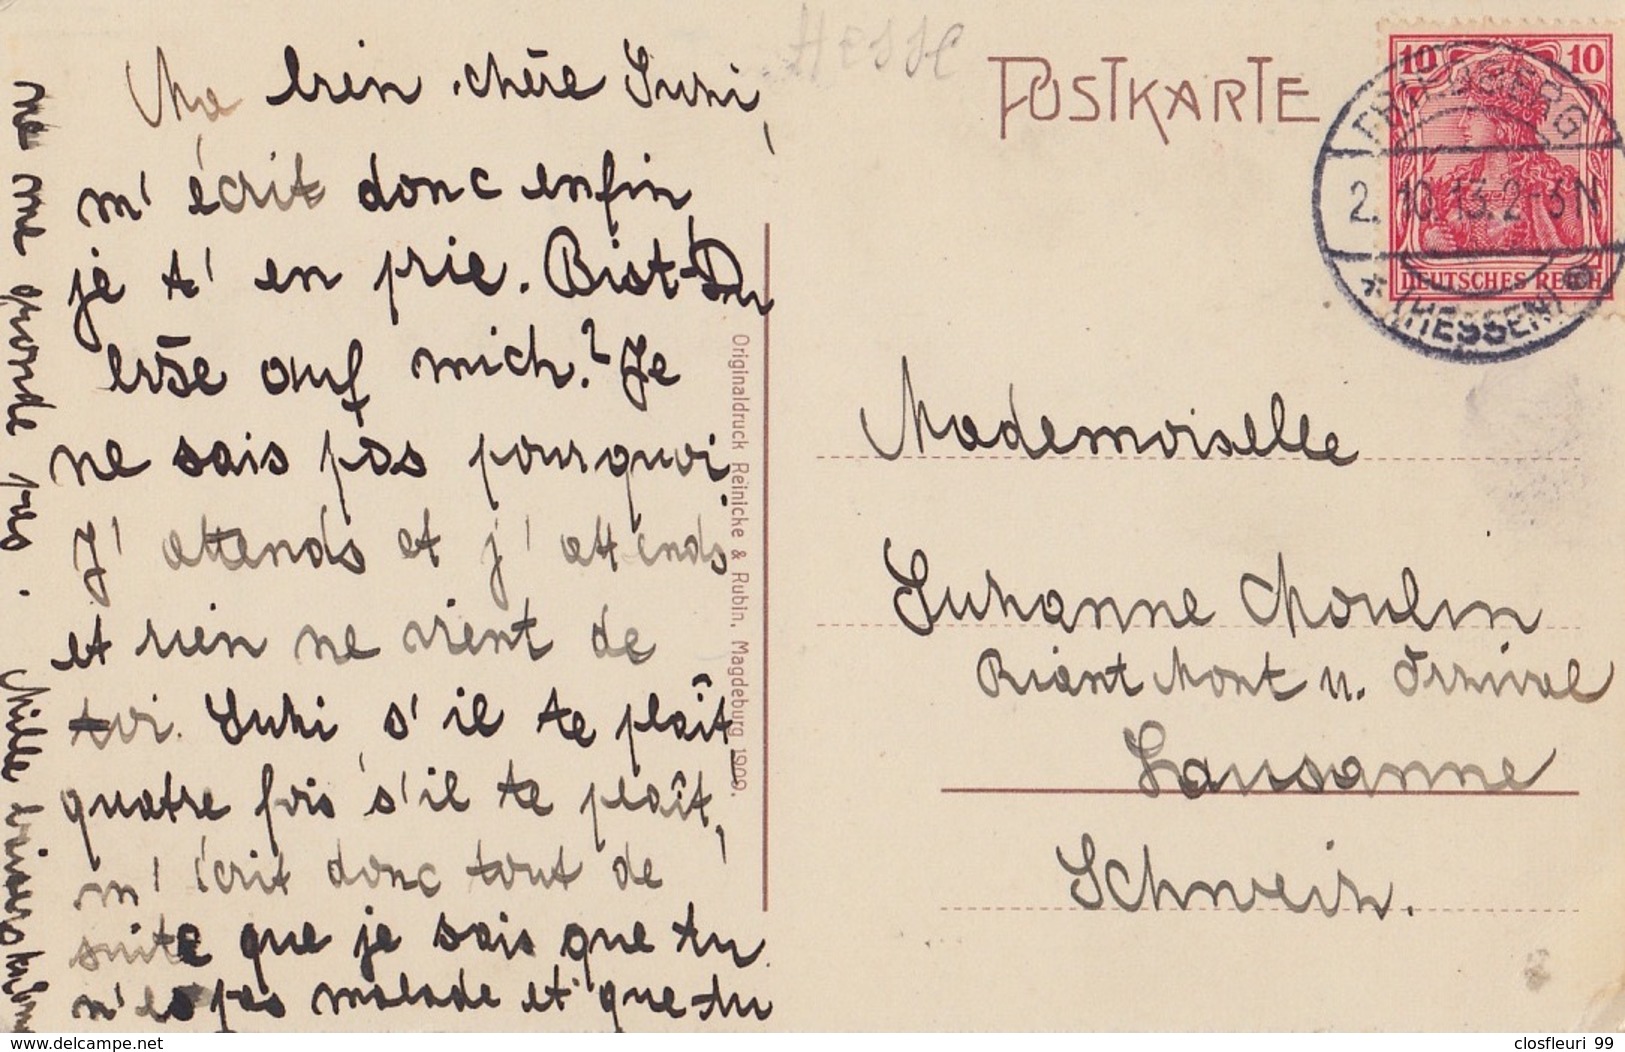 HESSE
POSTKARTE
10 10
DEUTSCHES REICH
FRIEDBERG
2.10.13.2-3N
* (HESSEN)
Ma bien chère Suzi,
m'écrit donc enfin,
je t'en prie. Bist Du
böse auf mich? Je
ne sais pas pourquoi.
J'attends et j'attends
et rien ne vient de
toi. Suzi, s'il te plaît
quatre fois s'il te plaît,
m'écrit donc tout de
suite que je sais que tu
n'es pas malade et que tu
ne me gronde pas. Mille baisers
Originaldruck Reinicke & Rubin, Magdeburg 1909.
Mademoiselle
Suzanne Moulin
Riant Mont u.
Lausanne
Schweiz.
www.delcampe.net
closfleuri 99